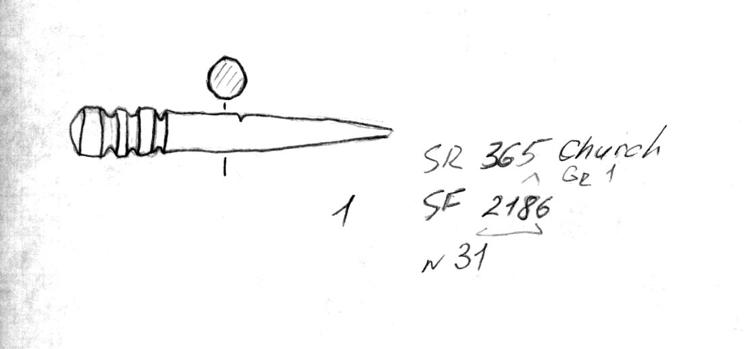 SR 365 Church
Gr 1
1
SF 2186
N 31